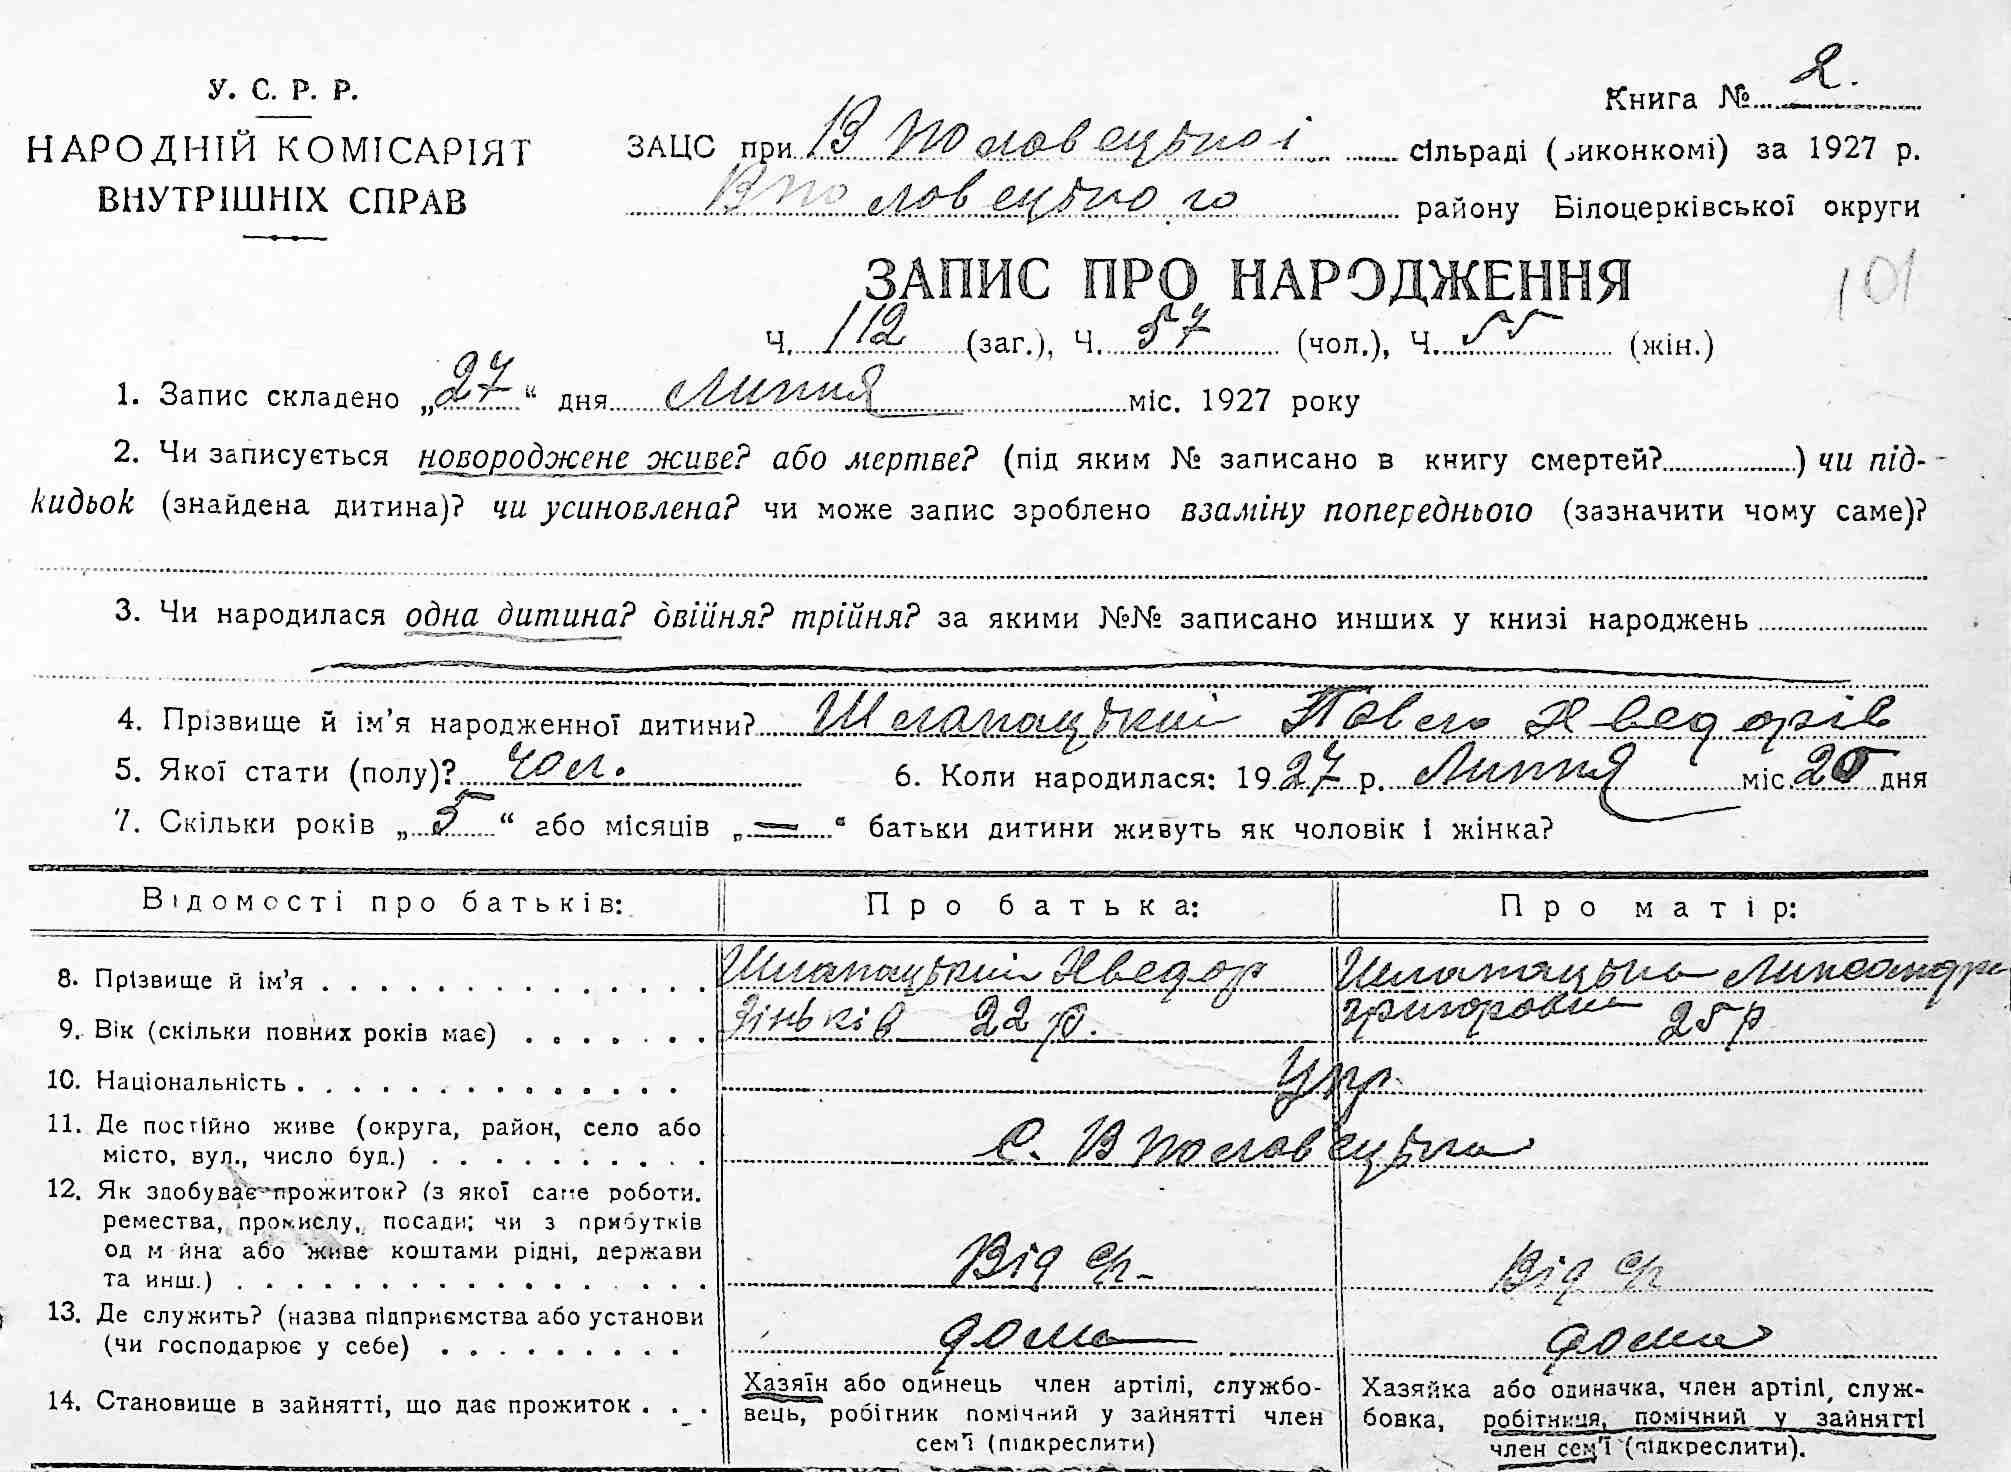 У. С. Р. Р.
НАРОДНІЙ КОМІСАРІЯТ
ВНУТРІШНІХ СПРАВ
Книга № 2.
ЗАЦС при В Половецькоі сільраді (виконкомі) за 1927 р.
В Половецького району Білоцерківської округи
ЗАПИС ПРО НАРОДЖЕННЯ
101
Ч. 112 (заг.), Ч. 57 (чол.), Ч. 55 (жін.)
1. Запис складено „27“ дня Липня міс. 1927 року
2. Чи записується новороджене живе? або мертве? (під яким № записано в книгу смертей?) чи під-
кидьок (знайдена дитина)? чи усиновлена? чи може запис зроблено взаміну попереднього (зазначити чому саме)?
3. Чи народилася одна дитина? двійня? трійня? за якими №№ записано инших у книзі народжень
4. Прізвище й ім’я народженної дитини? Шлапацький Павло Хведорів
5. Якої стати (полу)? чол. 6. Коли народилася: 1927 р. Липня міс. 25 дня
7. Скільки років „5“ або місяців „—“ батьки дитини живуть як чоловік і жінка?
Відомості про батьків: Про батька: Про матір:
8. Прізвище й ім’я Шлапацький Хведор Шлапацька Ликсандра
9. Вік (скільки повних років має) Зіньків 22 р. Григоровна 25 р
10. Національність Укр
11. Де постійно живе (округа, район, село або
місто, вул., число буд.) С. В Половецька
12. Як здобуває прожиток? (з якої саме роботи.
ремества, промислу, посади; чи з прибутків
од майна або живе коштами рідні, держави
та инш.) Від с/г- Від с/г
13. Де служить? (назва підприємства або установи
(чи господарює у себе) дома дома
14. Становище в зайнятті, що дає прожиток
Хазяїн або одинець член артілі, службо-
вець, робітник помічний у зайнятті член
сем’ї (підкреслити)
Хазяйка або одиначка, член артілі, служ-
бовка, робітниця, помічний у зайнятті
член сем’ї (підкреслити).